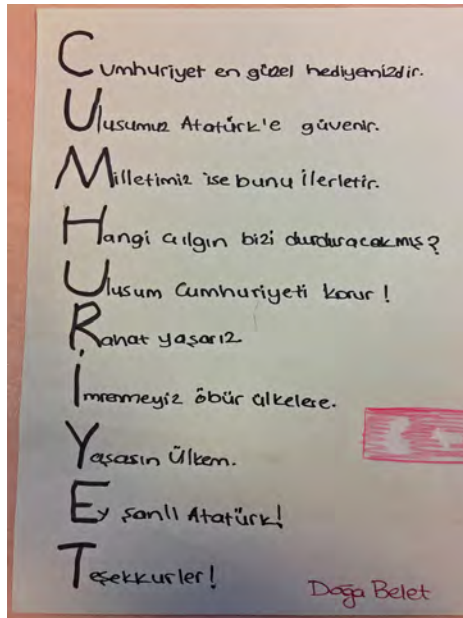 Cumhuriyet en güzel hediyemizdir.
Ulusumuz Atatürk'e güvenir.
Milletimiz ise bunu ilerletir.
Hangi çılgın bizi durduracakmış?
Ulusum Cumhuriyeti korur!
Rahat yaşarız
İmrenmeyiz öbür ülkelere.
Yaşasın Ülkem.
Ey şanlı Atatürk!
Teşekkurler!
Doğa Belet